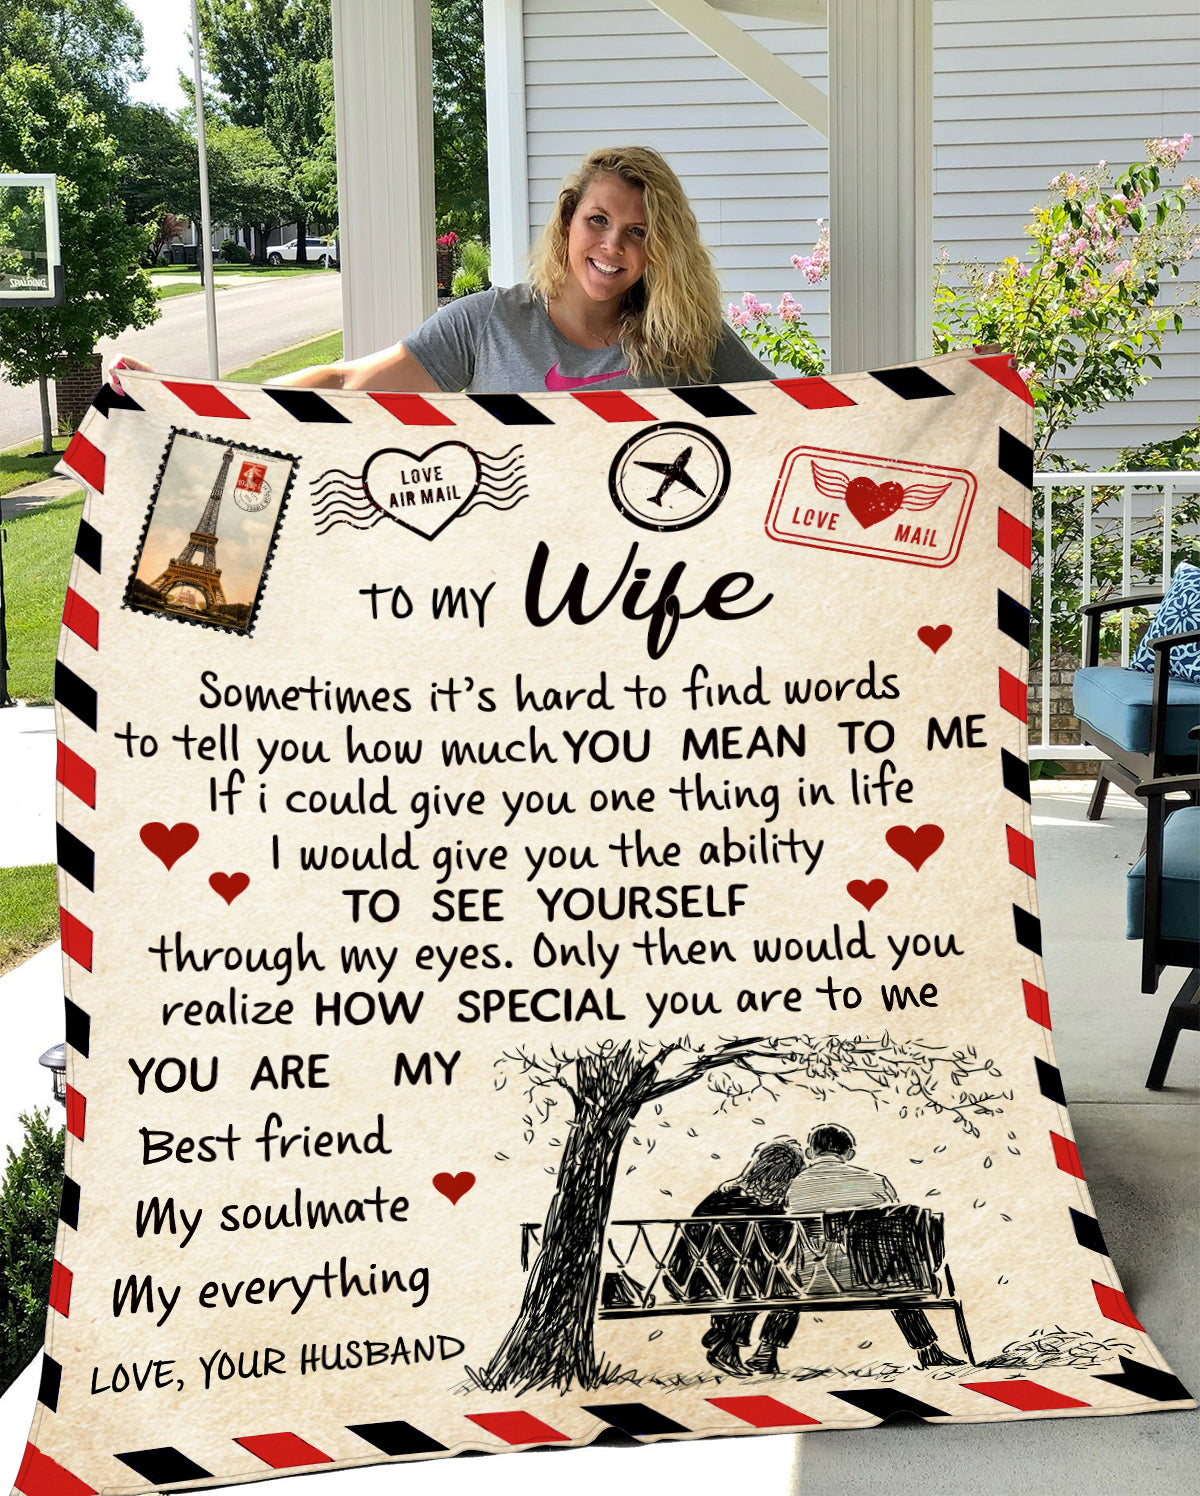 SPALDING
LOVE
AIR MAIL
LOVE MAIL
TO MY Wife
Sometimes it's hard to find words
to tell you how much YOU MEAN TO ME
If i could give you one thing in life
I would give you the ability
TO SEE YOURSELF
through my eyes. Only then would you
realize HOW SPECIAL you are to me
YOU ARE MY
Best friend
My soulmate
My everything
LOVE, YOUR HUSBAND